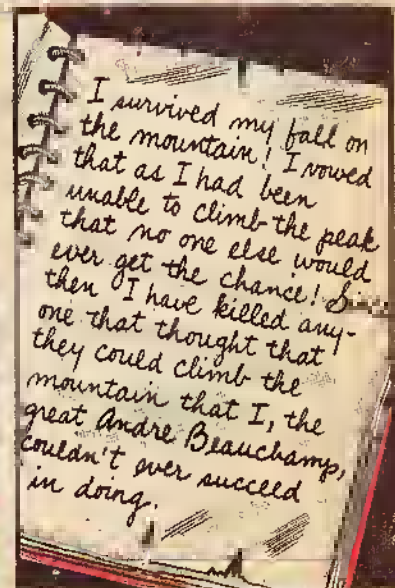 I survived my fall on
the mountain! I vowed
that as I had been
unable to climb the peak
that no one else would
ever get the chance! Since
then I have killed any-
one that thought that
they could climb the
mountain that I, the
great Andre Beauchamp,
couldn't ever succeed
in doing.